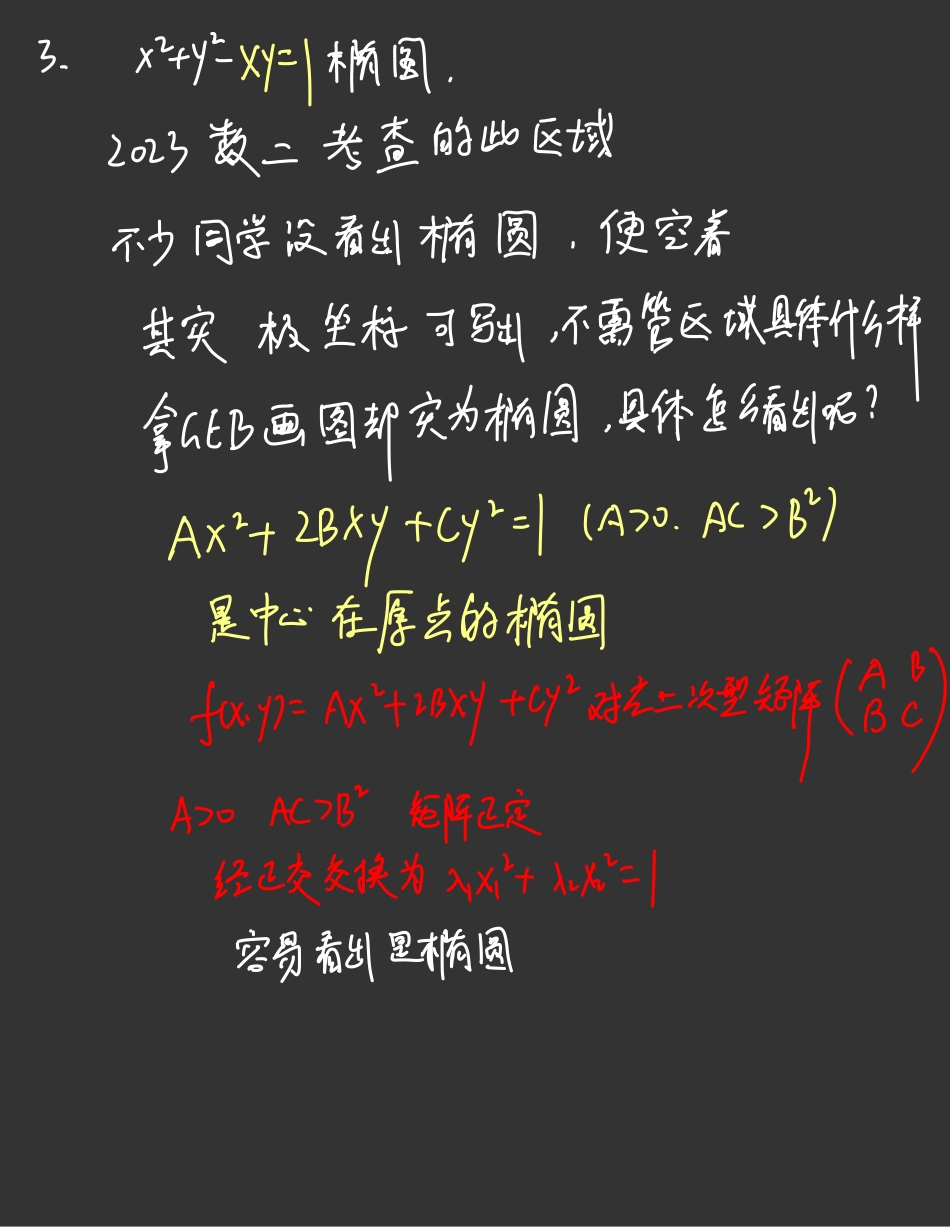 3. x²+y²-xy=1 椭圆.
2023 数二 考查的此区域
不少同学没看出椭圆,便空着
其实 极坐标可写出,不需管区域具体什么样
拿GEB画图却实为椭圆,具体怎么看出呢?
Ax²+2Bxy+Cy²=1 (A>0. AC>B²)
是中心在原点的椭圆
f(x,y)= Ax²+2Bxy+Cy² 对应二次型矩阵 (A B
B C)
A>0 AC>B² 矩阵正定
经正交变换为 λ₁x₁²+λ₂x₂²=1
容易看出是椭圆